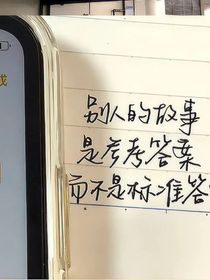 别人的故事
是参考答案
而不是标准答